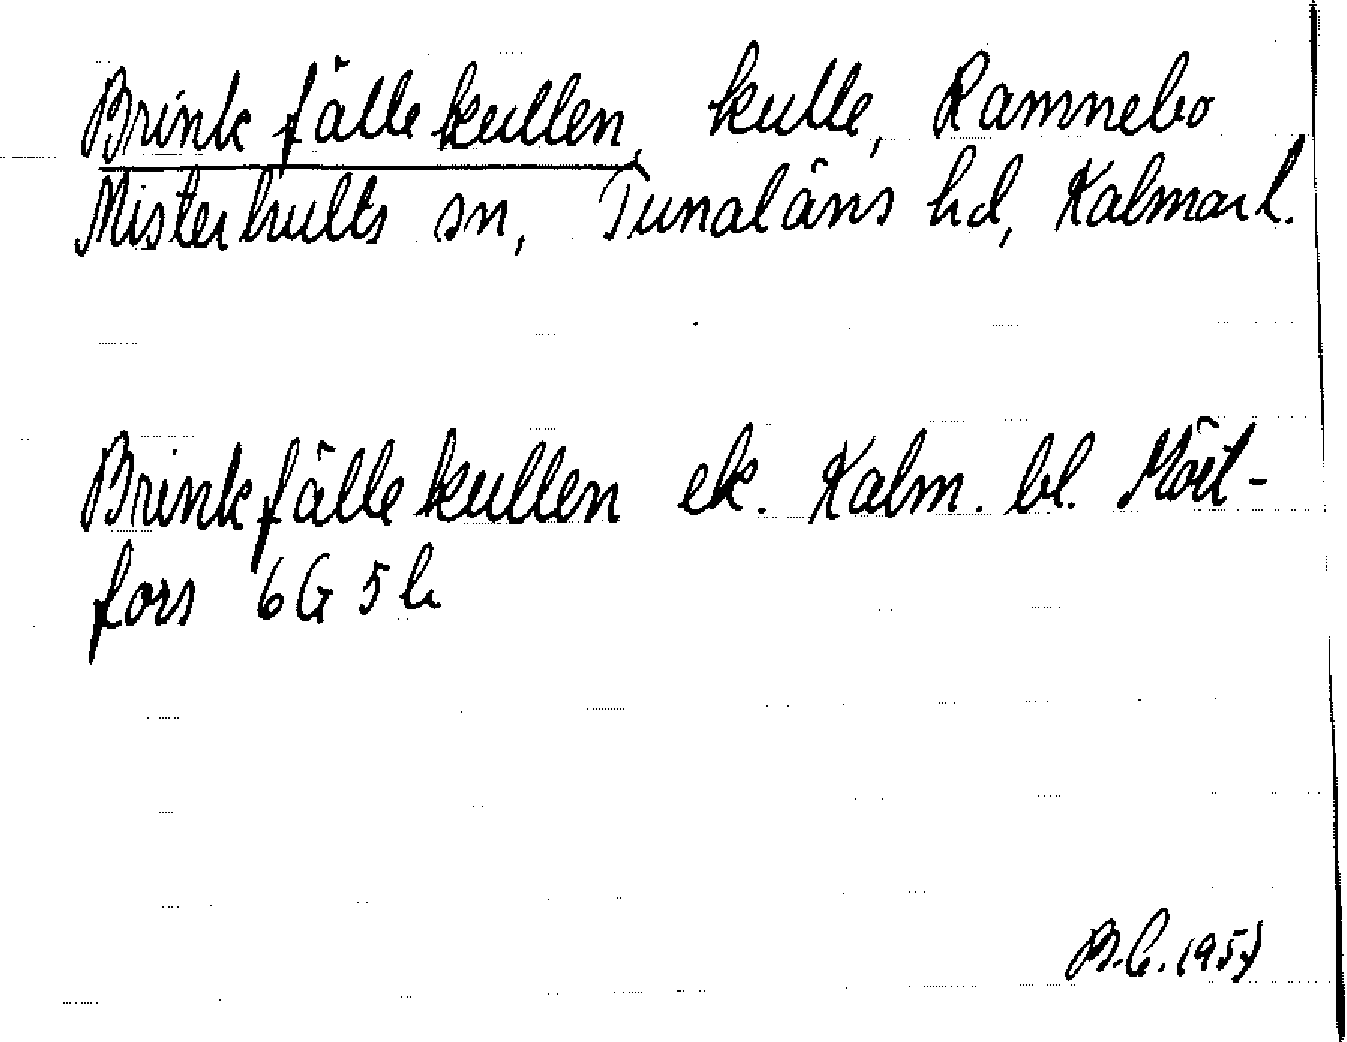 Brinkfällekullen, kulle, Ramnebo
Misterhults sn, Tunaläns hd, Kalmar l.
Brinkfällekullen ek. Kalm. bl. Mört-
fors 6G 5h